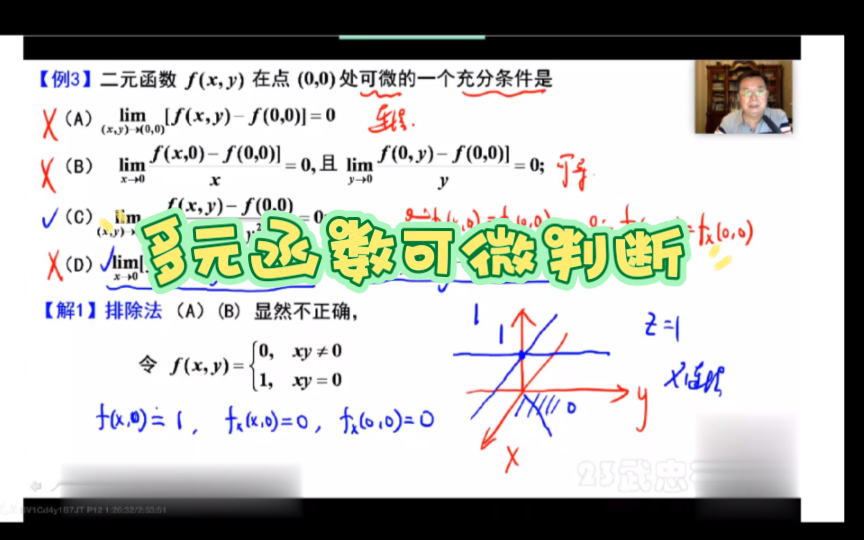 【例3】二元函数 f(x,y) 在点 (0,0) 处可微的一个充分条件是
X (A) lim (x,y)→(0,0) [f(x,y)−f(0,0)]=0 连续.
X (B) lim x→0 f(x,0)−f(0,0)] / x =0, 且 lim y→0 f(0,y)−f(0,0)] / y =0; 可导.
✓ (C) lim f(x,y)−f(0,0) =0 fx(0,0)
多元函数可微判断
X (D) ✓ lim x→0 [
【解1】排除法 (A) (B) 显然不正确,
令 f(x,y)= {0, xy≠0
1, xy=0
f(x,0)=1, fx(x,0)=0, fx(0,0)=0
1
1
z=1
X连续
0
y
x
23武忠
P12 1:26:32/2:53:51